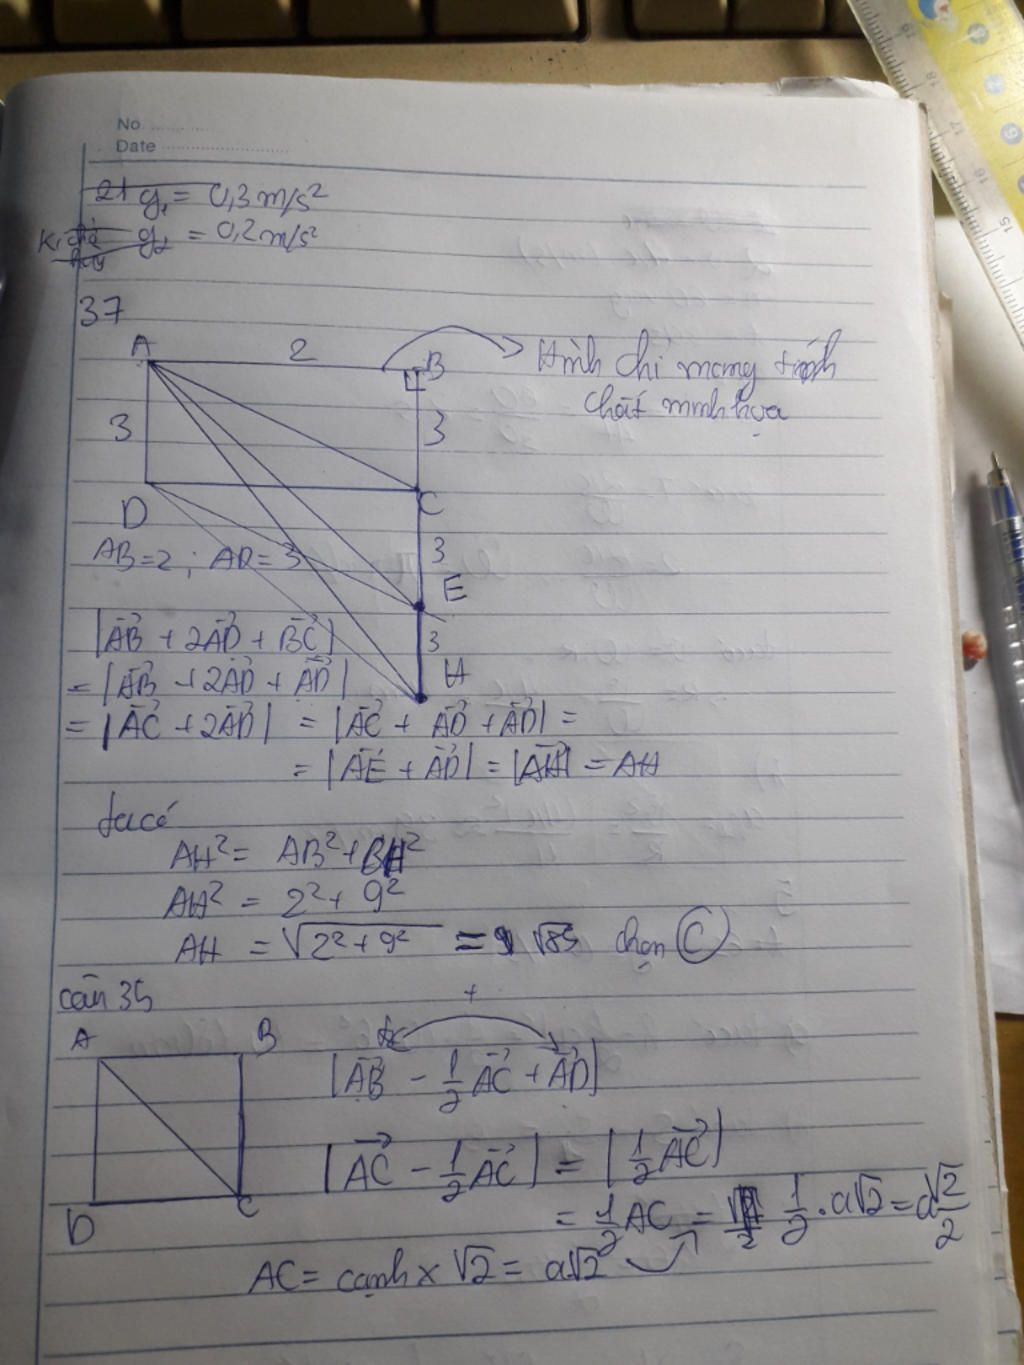 No.
Date
21 g₁ = 0,3 m/s²
g₂ = 0,2 m/s²
37
A 2 B
Hình chỉ mang tính
chất minh họa
3 3
D C
AB=2 ; AD=3 3
E
|AB⃗ + 2AD⃗ + BC⃗| 3
= |AB⃗ + 2AD⃗ + AD⃗| H
= |AC⃗ + 2AD⃗| = |AC⃗ + AD⃗ + AD⃗| =
= |AE⃗ + AD⃗| = |AH⃗| = AH
ta có
AH² = AB² + BH²
AH² = 2² + 9²
AH = √2² + 9² = √85 chọn C
câu 35
+
A B
|AB⃗ - 1/2 AC⃗ + AD⃗|
|AC⃗ - 1/2 AC⃗| = |1/2 AC⃗|
D C
= 1/2 AC = 1/2 . a√2 = a√2/2
AC = cạnh x √2 = a√2